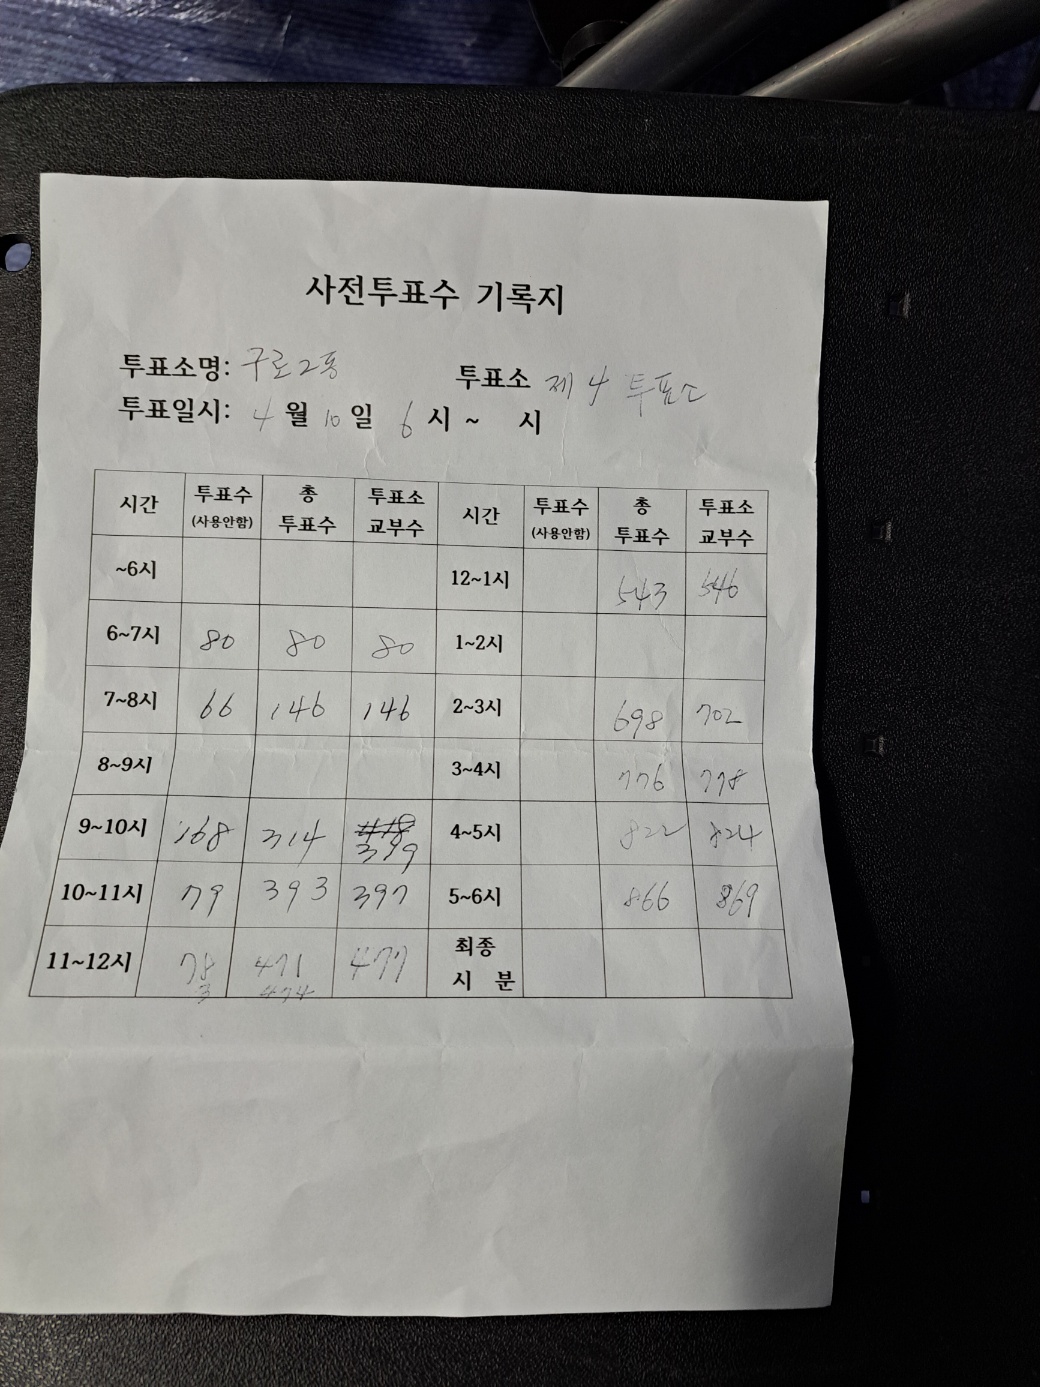 사전투표수 기록지
투표소명: 구로2동 투표소 제4 투표소
투표일시: 4월 10일 6시 ~ 시
시간 투표수 (사용안함) 총 투표수 투표소 교부수 시간 투표수 (사용안함) 총 투표수 투표소 교부수
~6시 12~1시 543 546
6~7시 80 80 80 1~2시
7~8시 66 146 146 2~3시 698 702
8~9시 3~4시 776 778
9~10시 168 314 4~5시 822 824
10~11시 79 393 397 5~6시 866 869
11~12시 78 471 477 최종 시 분
3 474